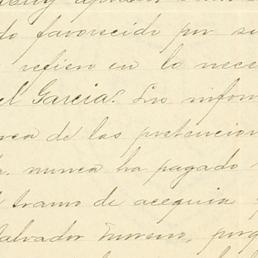 do favorecido por su
refiero en lo nece
el Garcia. Sus infor
rca de las pretencion
nunca ha pagado
el tramo de acequia
Salvador Moreno, porq